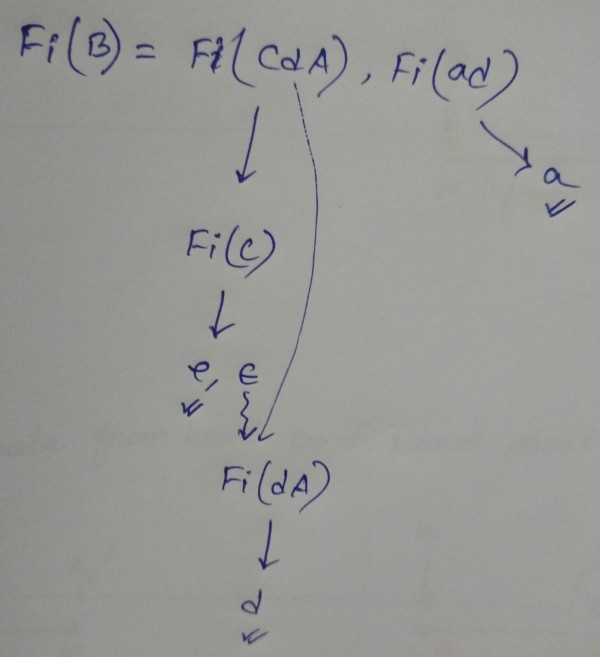 Fi(B) = Fi(CdA), Fi(ad)
a
Fi(C)
e, ϵ
Fi(dA)
d